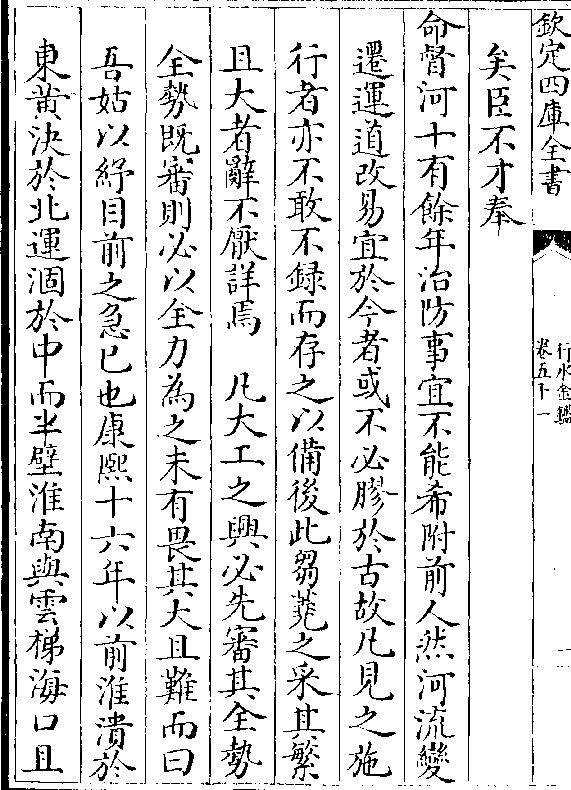 欽定四庫全書
行水金鑑
卷五十一
矣臣不才奉
命督河十有餘年治防事宜不能希附前人然河流變
遷運道改易宜於今者或不必膠於古故凡見之施
行者亦不敢不録而存之以備後此芻蕘之采其繁
且大者辭不厭詳焉　凡大工之興必先審其全勢
全勢既審則必以全力為之未有畏其大且難而曰
吾姑以紓目前之急已也康熙十六年以前淮潰於
東黄決於北運涸於中而半壁淮南與雲梯海口且